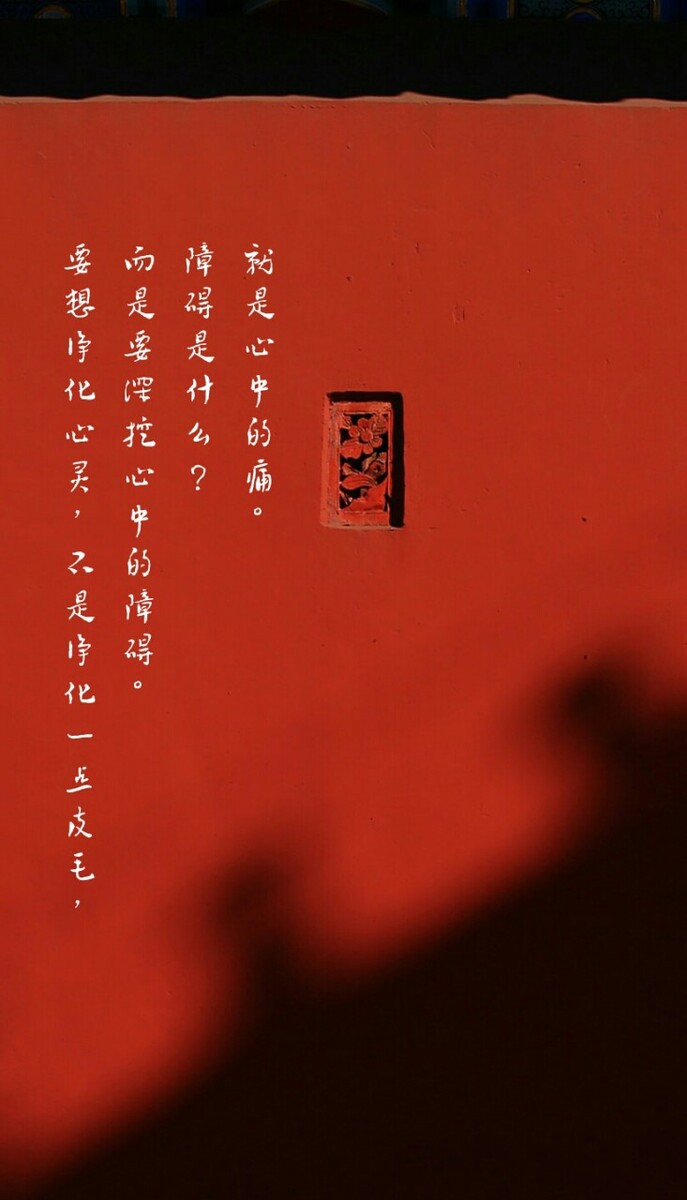 要想净化心灵，不是净化一点皮毛，
而是要深挖心中的障碍。
障碍是什么？
就是心中的痛。